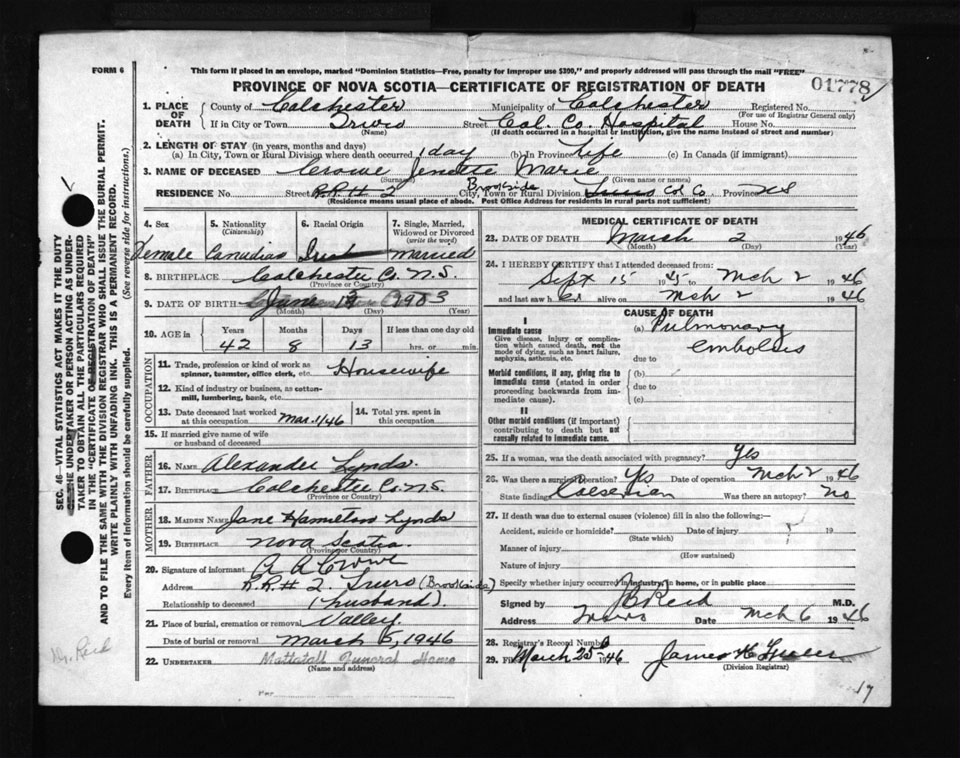 FORM 6
This form if placed in an envelope, marked "Dominion Statistics—Free, penalty for improper use $300," and properly addressed will pass through the mail "FREE"
PROVINCE OF NOVA SCOTIA—CERTIFICATE OF REGISTRATION OF DEATH
01778
1. PLACE OF DEATH { County of Colchester Municipality of Colchester Registered No.
(For use of Registrar General only)
If in City or Town Truro Street Col. Co. Hospital House No.
(Name) (If death occurred in a hospital or institution, give the name instead of street and number)
2. LENGTH OF STAY (in years, months and days)
(a) In City, Town or Rural Division where death occurred 1 day (b) In Province Life (c) In Canada (if immigrant)
3. NAME OF DECEASED Crowe Jenette Marie
(Surname) (Given name or names)
RESIDENCE No. Street R.R.# 2 Brookside City, Town or Rural Division Truro Col Co. Province N S
(Residence means usual place of abode. Post Office Address for residents in rural parts not sufficient)
4. Sex
Female
5. Nationality (Citizenship)
Canadian
6. Racial Origin
Irish
7. Single, Married, Widowed or Divorced (write the word)
Married
8. BIRTHPLACE Colchester Co. N.S.
(Province or Country)
9. DATE OF BIRTH June 19 1903
(Month) (Day) (Year)
10. AGE in Years Months Days If less than one day old
42 8 13 hrs. or min.
OCCUPATION
11. Trade, profession or kind of work as spinner, teamster, office clerk, etc. Housewife
12. Kind of industry or business, as cotton-mill, lumbering, bank, etc.
13. Date deceased last worked at this occupation Mar. 1/46
14. Total yrs. spent in this occupation
15. If married give name of wife or husband of deceased
FATHER
16. NAME Alexander Lynds.
17. BIRTHPLACE Colchester Co. N.S.
(Province or Country)
MOTHER
18. MAIDEN NAME Jane Hamilton Lynds
19. BIRTHPLACE Nova Scotia
(Province or Country)
20. Signature of informant A A Crowe
Address R.R.# 2. Truro (Brookside)
Relationship to deceased (husband).
21. Place of burial, cremation or removal Valley.
Date of burial or removal March 5, 1946
22. UNDERTAKER Mattatall Funeral Home
(Name and address)
Per
MEDICAL CERTIFICATE OF DEATH
23. DATE OF DEATH March 2 1946
(Month) (Day) (Year)
24. I HEREBY CERTIFY that I attended deceased from:
Sept 15 1945 to Mch 2 1946
and last saw her alive on Mch 2 1946
CAUSE OF DEATH
I
Immediate cause
Give disease, injury or complication which caused death, not the mode of dying, such as heart failure, asphyxia, asthenia, etc.
(a) Pulmonary embolus
due to
Morbid conditions, if any, giving rise to immediate cause (stated in order proceeding backwards from immediate cause).
(b)
due to
(c)
II
Other morbid conditions (if important) contributing to death but not causally related to immediate cause.
25. If a woman, was the death associated with pregnancy? Yes
26. Was there a surgical operation? Yes Date of operation Mch 2 1946
State finding Caesarian Was there an autopsy? No
27. If death was due to external causes (violence) fill in also the following:—
Accident, suicide or homicide? Date of injury 19
(State which)
Manner of injury
(How sustained)
Nature of injury
Specify whether injury occurred in industry, in home, or in public place
Signed by J B Reid M.D.
Address Truro Date Mch 6 1946
28. Registrar's Record Number
29. Filed March 25 1946
(Division Registrar)
17
Dr. Reid
SEC. 46—VITAL STATISTICS ACT MAKES IT THE DUTY
OF THE UNDERTAKER OR PERSON ACTING AS UNDER-
TAKER TO OBTAIN ALL THE PARTICULARS REQUIRED
IN THE "CERTIFICATE OF REGISTRATION OF DEATH"
AND TO FILE THE SAME WITH THE DIVISION REGISTRAR WHO SHALL ISSUE THE BURIAL PERMIT.
WRITE PLAINLY WITH UNFADING INK. THIS IS A PERMANENT RECORD.
Every item of information should be carefully supplied. (See reverse side for instructions.)